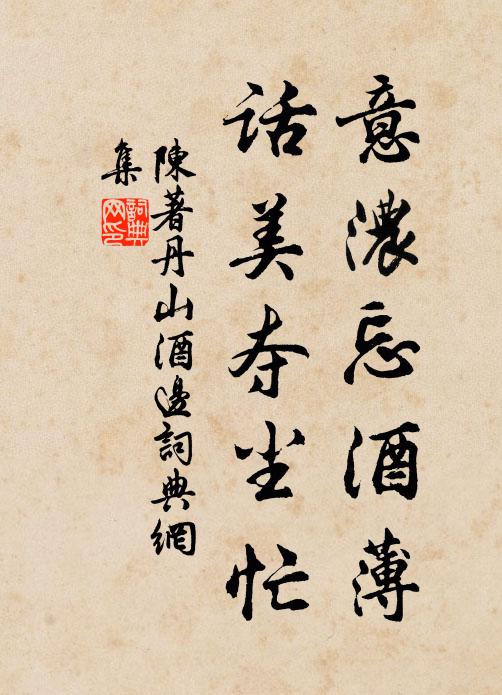 意濃忘酒薄
话美夺尘忙
陳著丹山酒邊詞典網
集
詞典網印